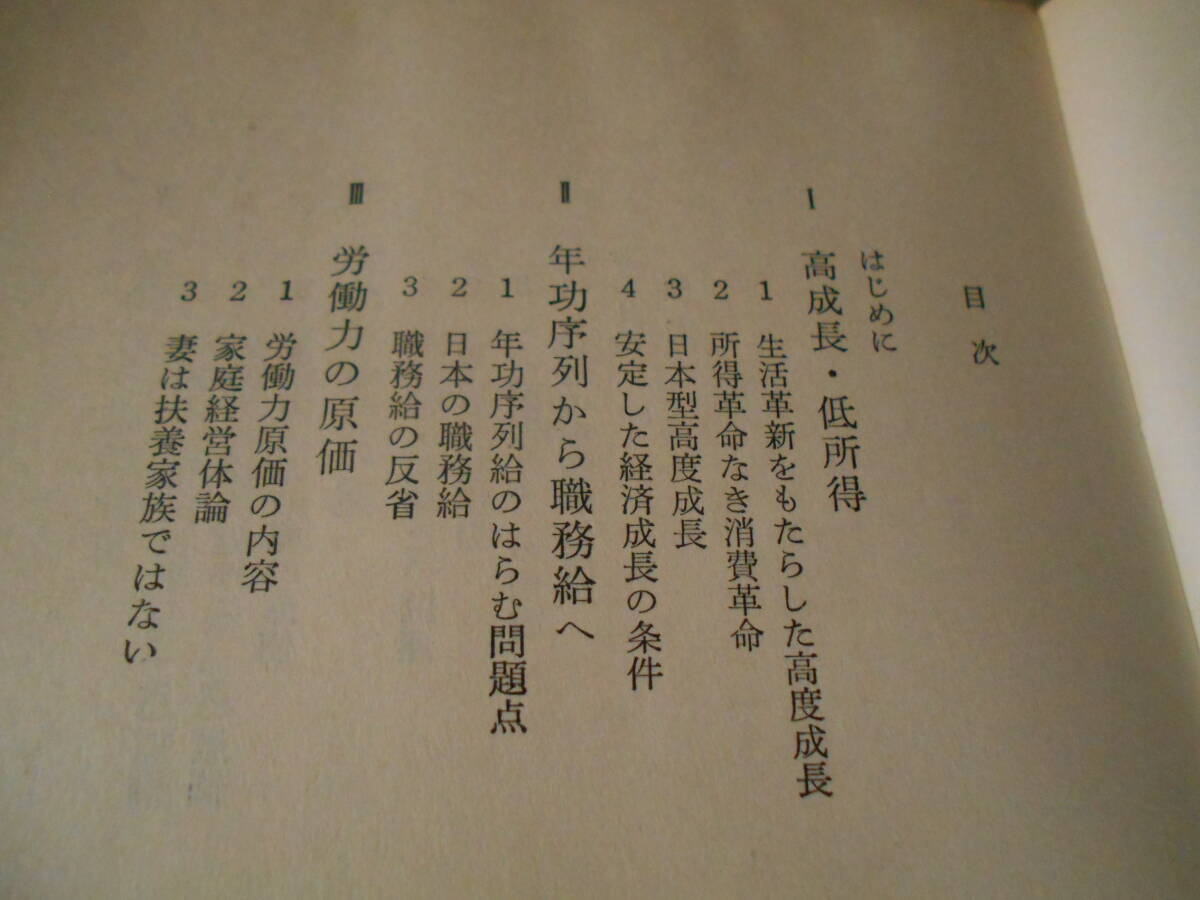 目次
はじめに
Ⅰ 高成長・低所得
1 生活革新をもたらした高度成長
2 所得革命なき消費革命
3 日本型高度成長
4 安定した経済成長の条件
Ⅱ 年功序列から職務給へ
1 年功序列給のはらむ問題点
2 日本の職務給
3 職務給の反省
Ⅲ 労働力の原価
1 労働力原価の内容
2 家庭経営体論
3 妻は扶養家族ではない